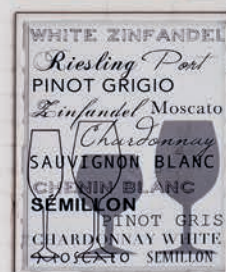 WHITE ZINFANDEL
Riesling Port
PINOT GRIGIO
Zinfandel Moscato
Chardonnay
SAUVIGNON BLANC
CHENIN BLANC
SÉMILLON
PINOT GRIS
CHARDONNAY WHITE
MOSCATO SEMILLON